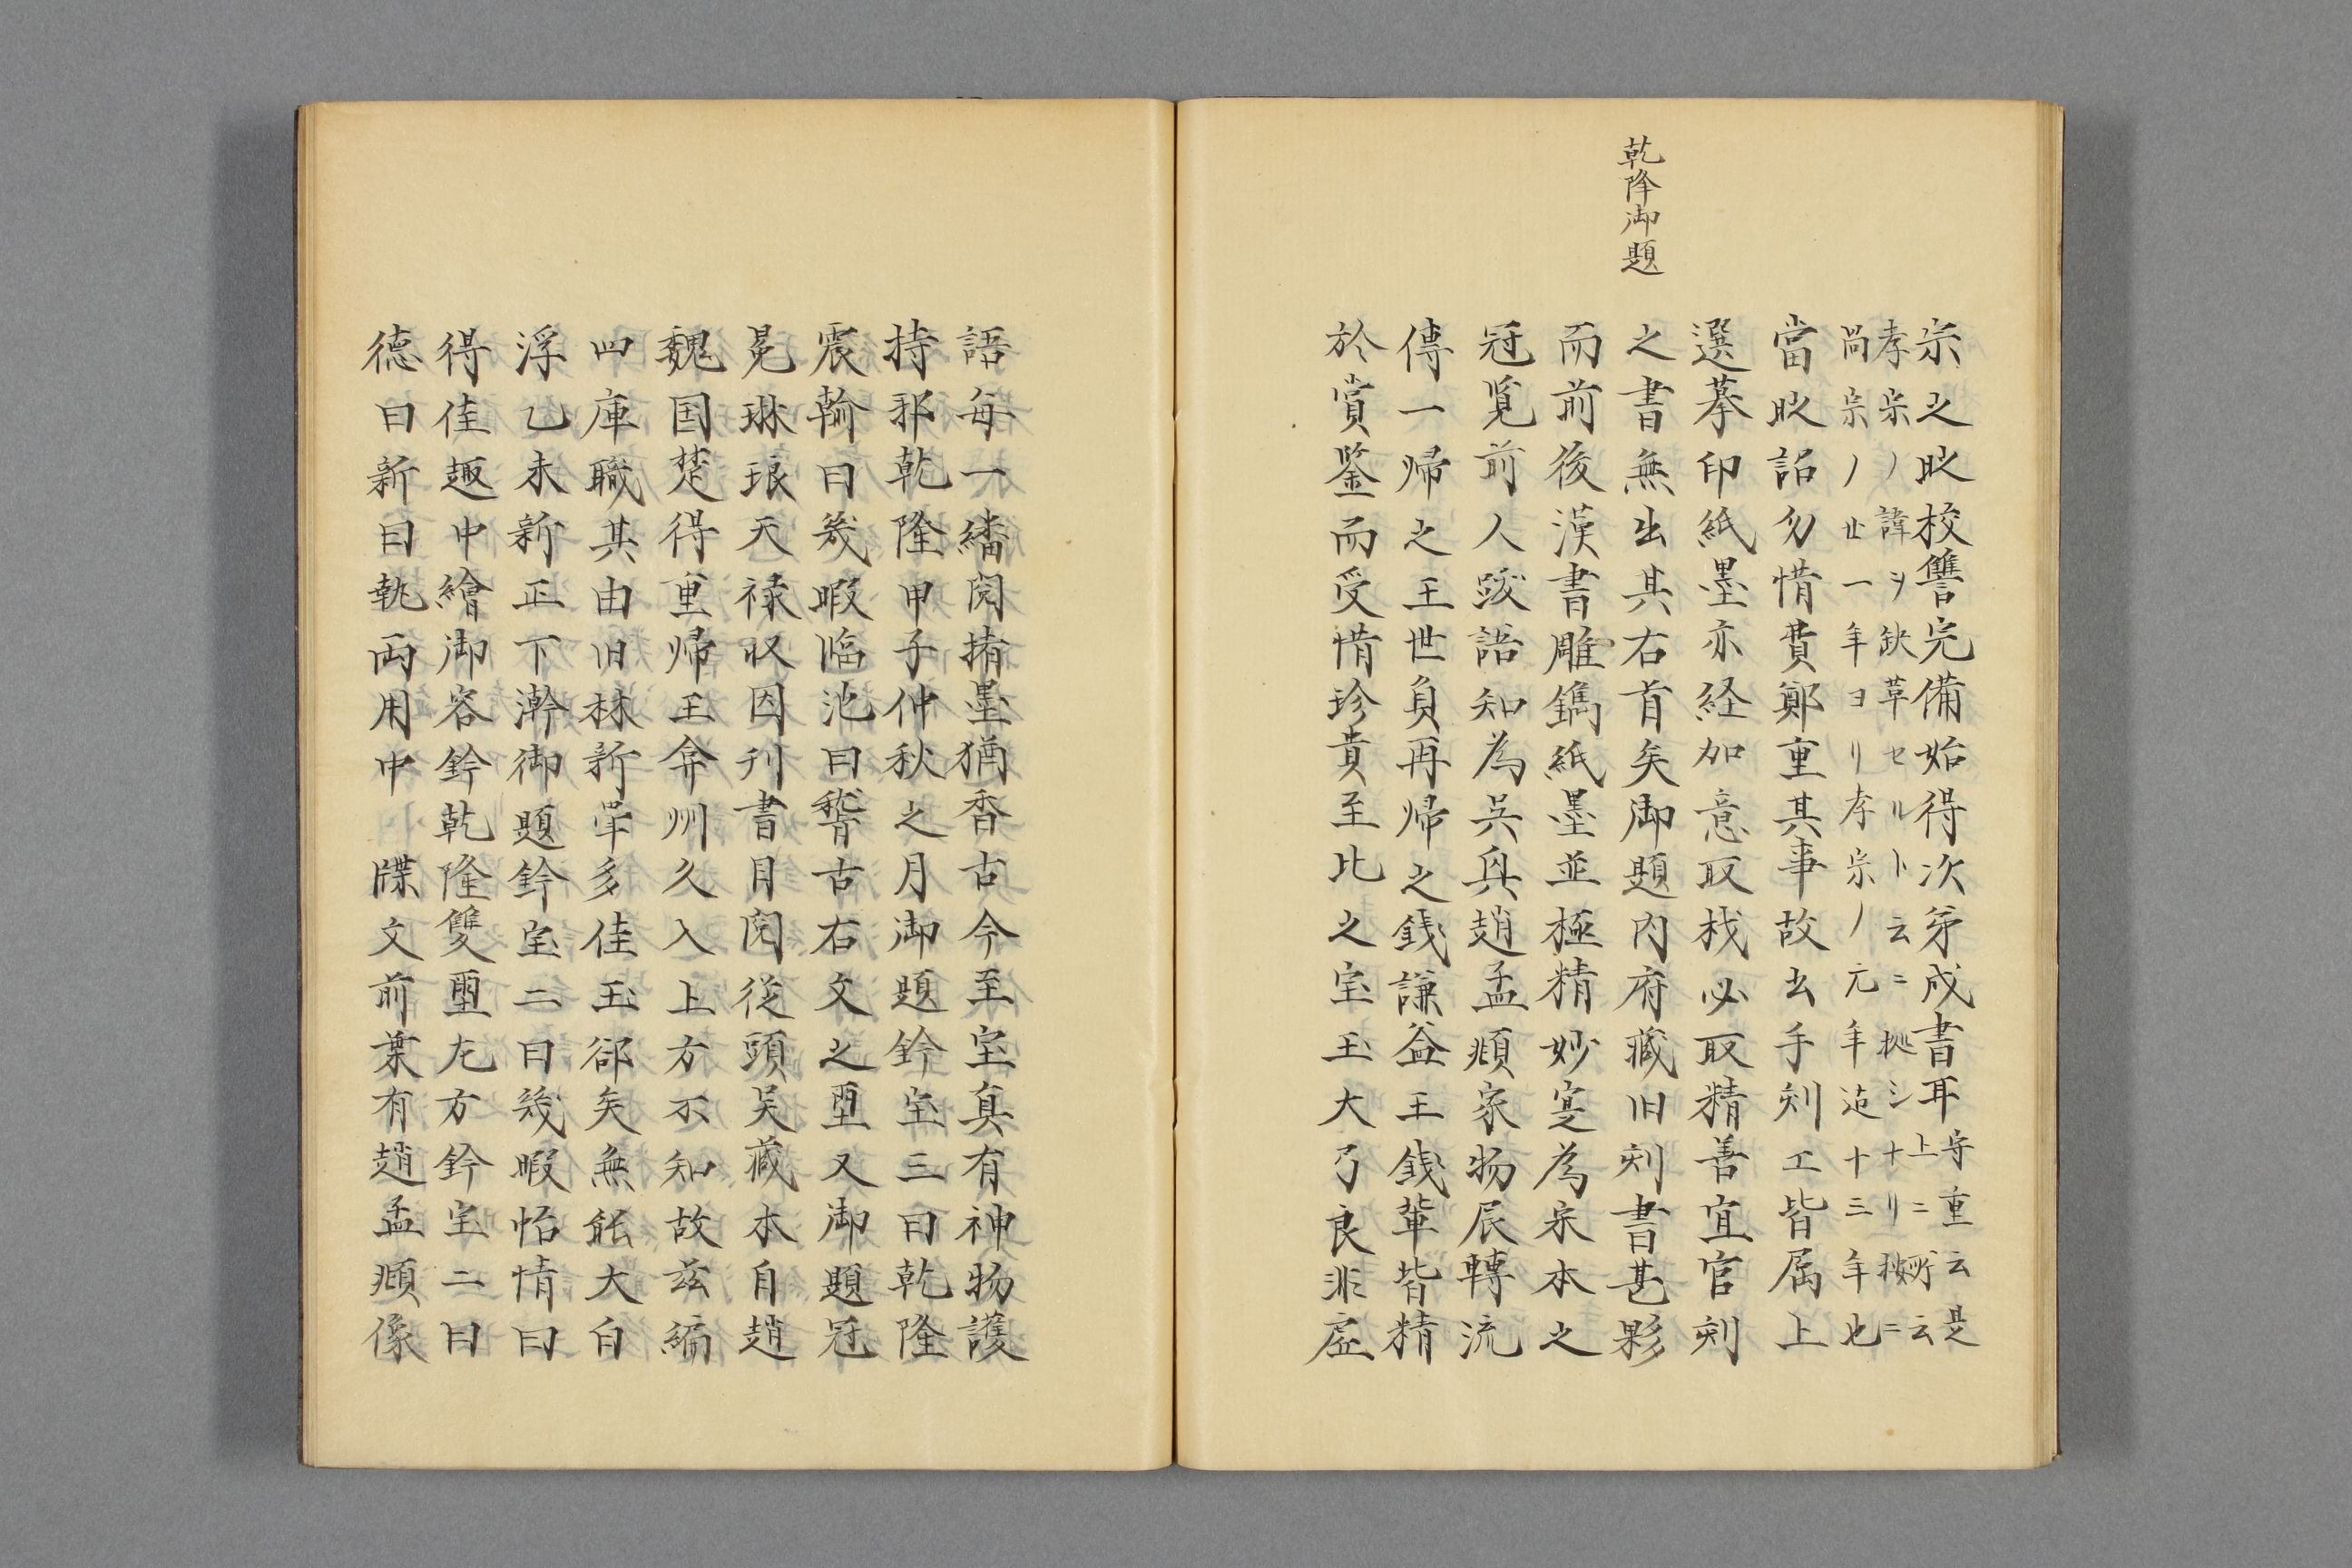 乾降御題
宗之時校讐完備始得次㐧成書耳
守重云是
上ニ所云
孝宗ノ諱ヲ缺草セルト云ニ拠シナリ按ニ
尚宗ノ廿一年ヨリ孝宗ノ元年迠十三年也
當時詔勿惜費鄭重其事故手刻工皆属上
選摹印紙墨亦経加意取材必取精善宜官刻
之書無出其右首矣御題内府蔵旧刻書甚夥
而前後漢書雕鐫紙墨並極精妙寔為宋本之
冠覓前人跋語知為呉興趙孟頫家物辰轉流
傳一帰之王世負再帰之錢謙益王錢軰皆精
於賞鑒而受惜珍貴至比之宝玉大弓良非虚
語每一繙閲墨猶香古今至宝真有神物護
持邪乾隆甲子仲秋之月御題鈐宝三曰乾隆
震翰曰幾暇臨池曰稽古右文之璽又御題冠
冕琳琅天禄収因刊書目閲従頭呉蔵本自趙
魏国楚得重帰王弇州久入上方不知故茲編
四庫職其由旧林新犖多佳玉郤矣無能大白
浮乙未新正下澣御題鈐宝二曰幾暇怡情曰
得佳趣中繪御容鈐乾隆雙璽左方鈐宝二曰
徳日新曰執両用中 牒文前葉有趙孟頫像